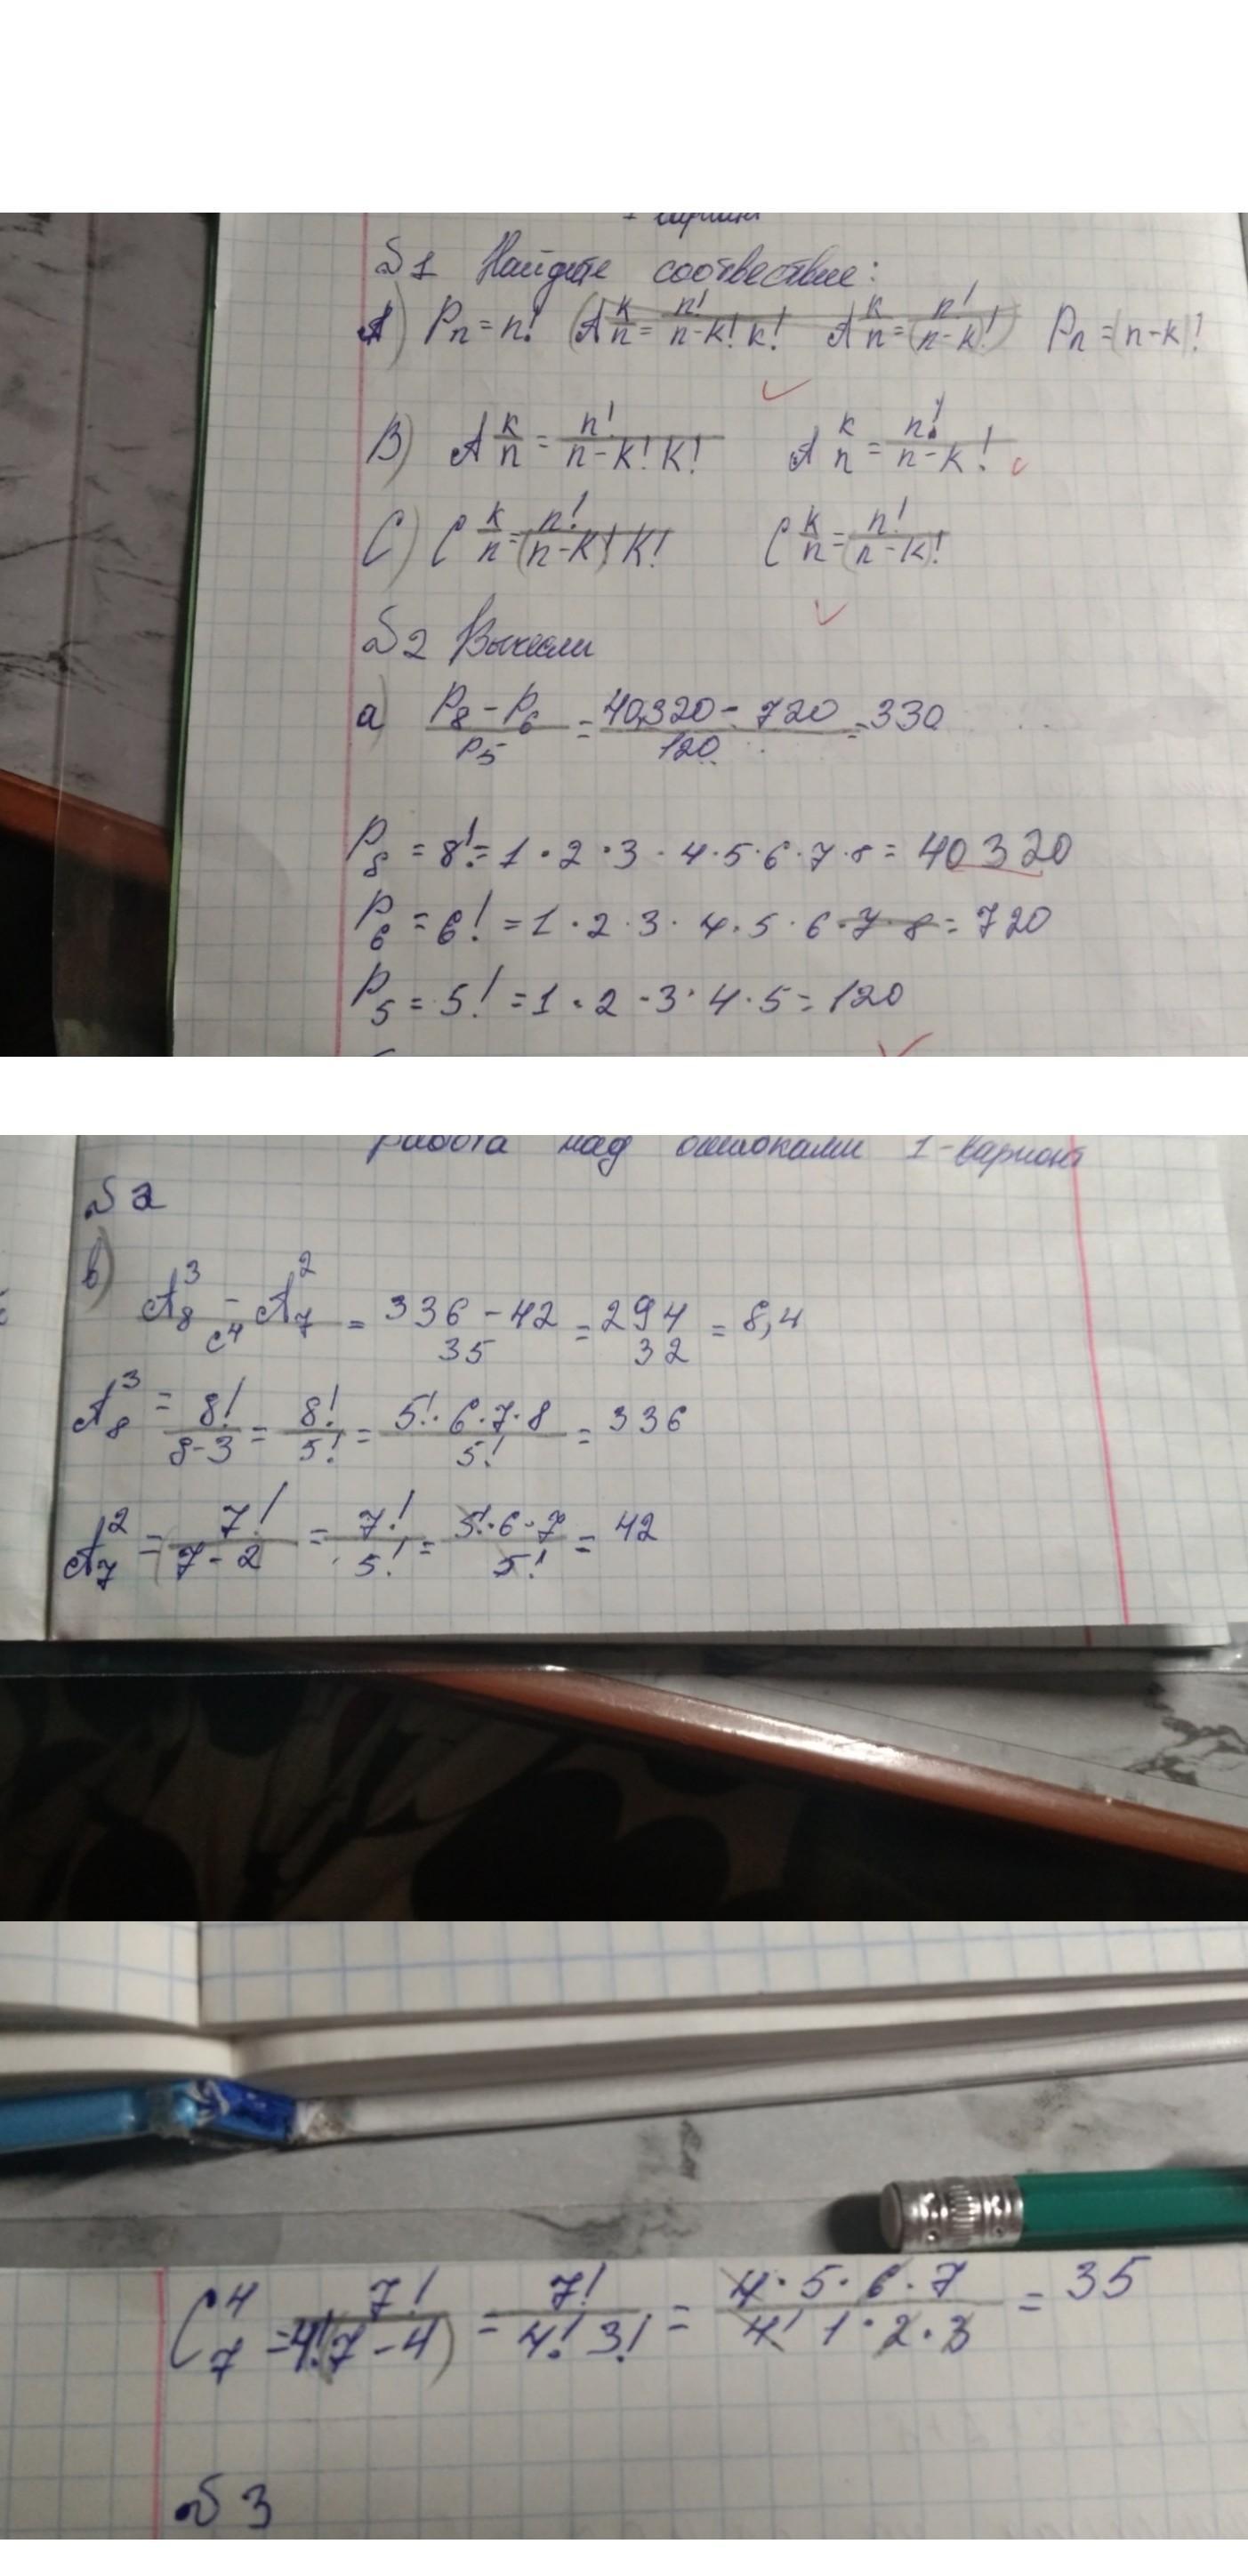 1 вариант
№1 Найдите соотвествие:
A) Pn = n! (A k/n = n!/n-k! k! A k/n = n!/(n-k)!) Pn = (n-k)!
B) A k/n = n!/n-k! k! A k/n = n!/n-k!
C) C k/n = n!/(n-k)! k! C k/n = n!/(n-k)!
№2 Вычесли
a) P8 - P6 / P5 = 40320 - 720 / 120 = 330
P8 = 8! = 1 · 2 · 3 · 4 · 5 · 6 · 7 · 8 = 40320
P6 = 6! = 1 · 2 · 3 · 4 · 5 · 6 · 7 · 8 = 720
P5 = 5! = 1 · 2 · 3 · 4 · 5 = 120
Работа над ошибками 1-вариант
№2
в) A₈³ - A₇² / C⁴ = 336 - 42 / 35 = 294 / 32 = 8,4
A₈³ = 8! / 8-3 = 8! / 5! = 5! · 6 · 7 · 8 / 5! = 336
A₇² = 7! / (7-2 = 7! / 5! = 5! · 6 · 7 / 5! = 42
C₇⁴ = 7! / 4!(7-4) = 7! / 4! 3! = 4 · 5 · 6 · 7 / 4! 1 · 2 · 3 = 35
№3